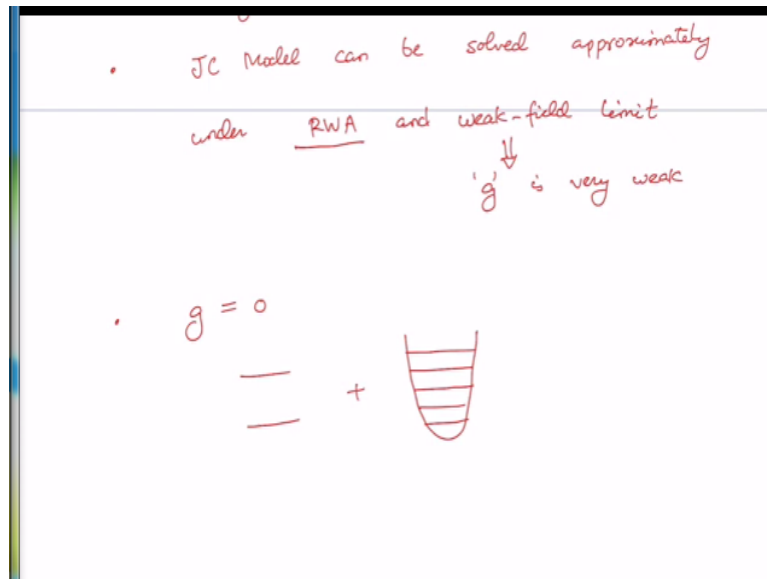 • JC Model can be solved approximately
under RWA and weak-field limit
⇓
'g' is very weak
• g = 0
+